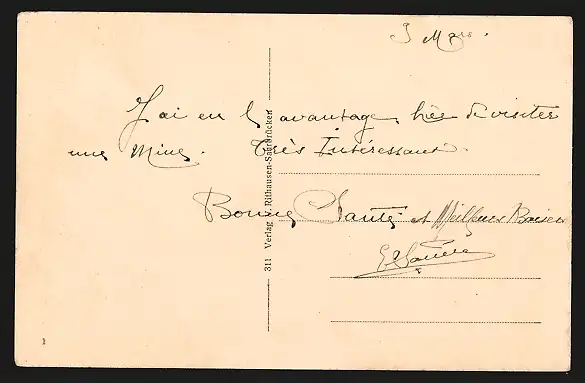 3 Mars.
J'ai eu l'avantage hier de visiter
une Mine. Très Intéressant.
Bonne Santé et Meilleurs Baisers
311 Verlag V. Rithausen-Saarbrücken